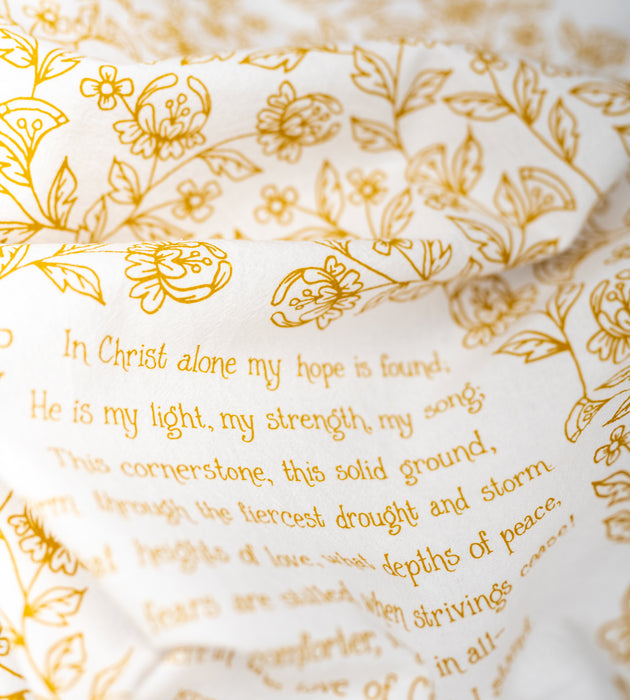 In Christ alone my hope is found;
He is my light, my strength, my song;
This cornerstone, this solid ground,
through the fiercest drought and storm.
heights of love, what depths of peace,
fears are stilled when strivings cease!
comforter, in all—
love of C